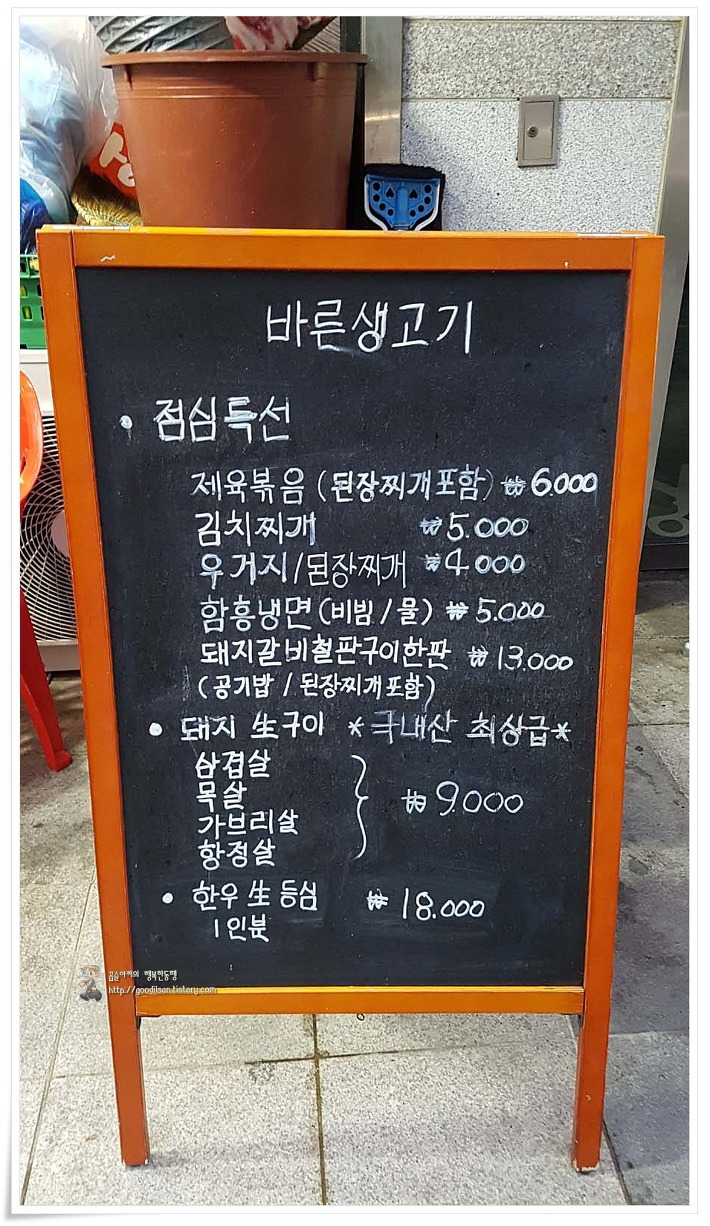 바른생고기
• 점심특선
제육볶음 (된장찌개포함) ₩6.000
김치찌개 ₩5.000
우거지/된장찌개 ₩4.000
함흥냉면(비빔/물) ₩5.000
돼지갈비철판구이한판 ₩13.000
(공기밥 / 된장찌개포함)
• 돼지 生구이 *국내산 최상급*
삼겹살
목살
가브리살
항정살
} ₩9.000
• 한우 生 등심 ₩18.000
1인분
http://goodilsan.tistory.com